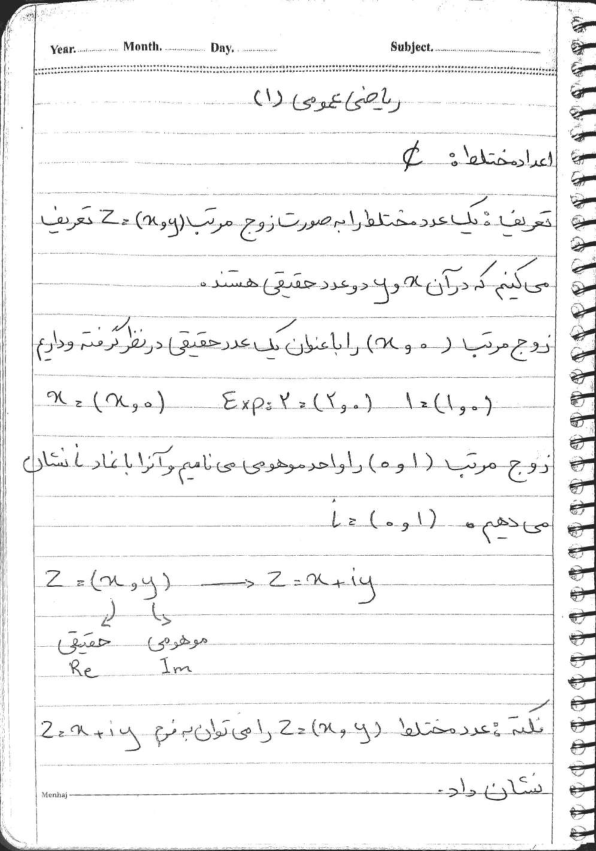 Year. Month. Day. Subject.
ریاضی عمومی (۱)
اعداد مختلط: ℂ
تعریف: یک عدد مختلط را به صورت زوج مرتب Z = (x و y) تعریف
می کنیم که در آن x و y دو عدد حقیقی هستند.
زوج مرتب (x و ۰) را با عنوان یک عدد حقیقی در نظر گرفته و داریم
x = (x و ۰) Exp: ۲ = (۲ و ۰) ۱ = (۱ و ۰)
زوج مرتب (۰ و ۱) را واحد موهومی می نامیم و آنرا با نماد i نشان
می دهیم. i = (۰ و ۱)
Z = (x و y) → Z = x + iy
حقیقی موهومی
Re Im
نکته: عدد مختلط Z = (x و y) را می توان به فرم Z = x + iy
نشان داد.
Menhaj